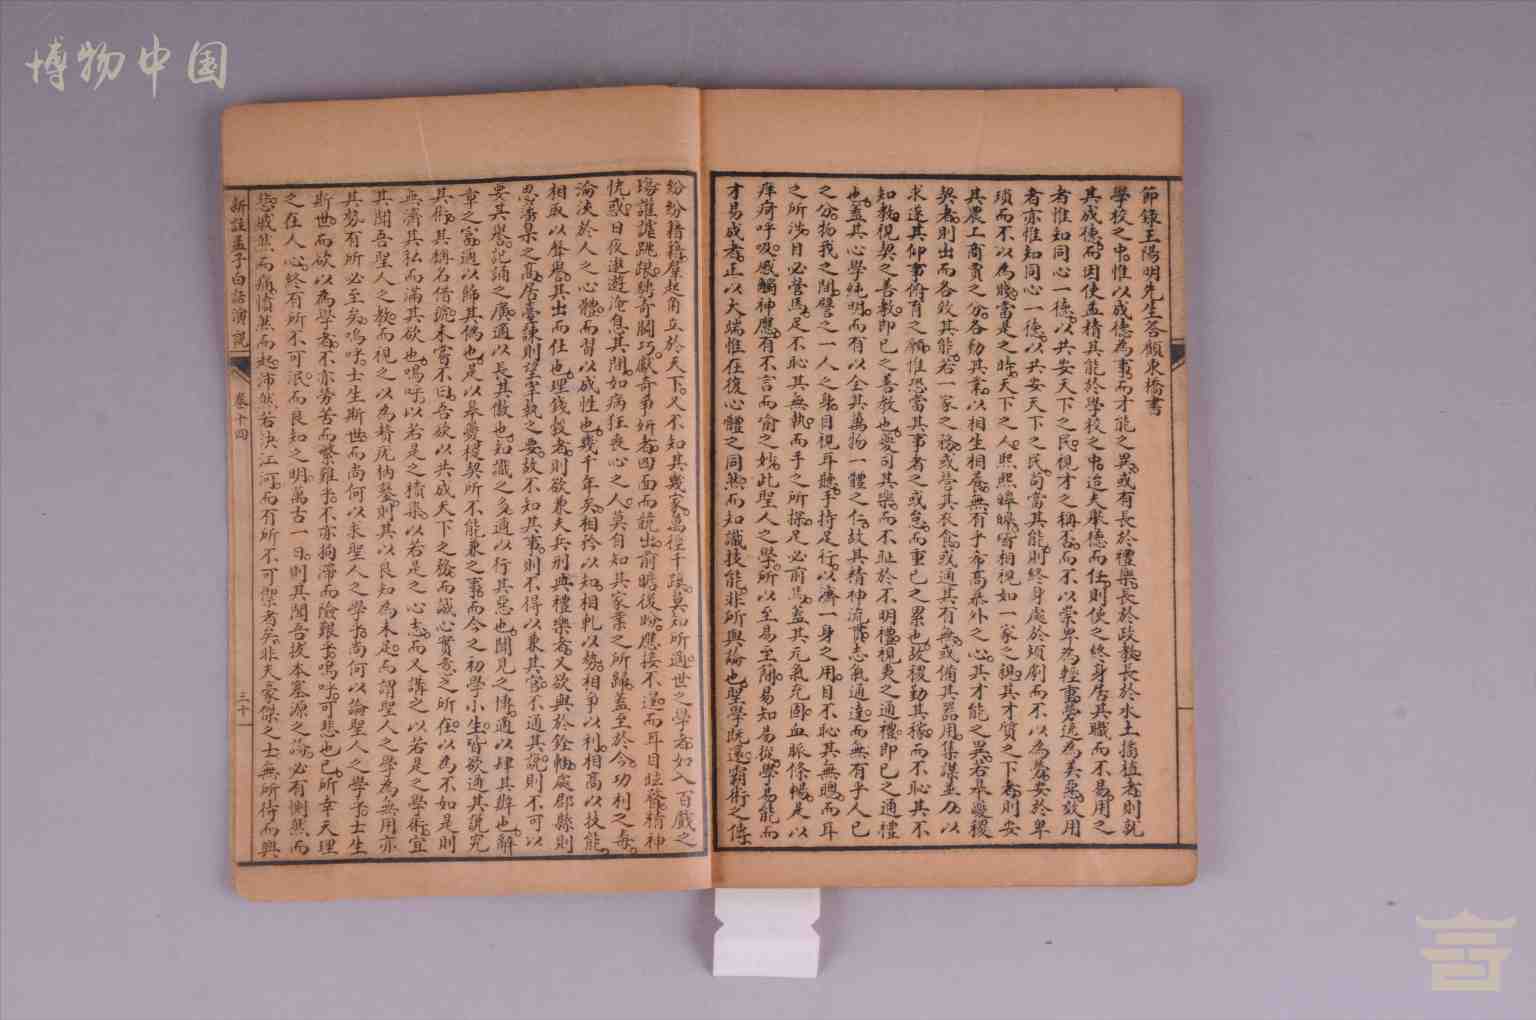 博物中国
節錄王陽明先生答顧東橋書
學校之中惟以成德為事而才能之異或有長於禮樂長於政教長於水土播植者則就
其成德而因使益精其能於學校之中迨夫舉德而任則使之終身居其職而不易用之
者惟知同心一德以共安天下之民視才之稱否而不以崇卑為輕重勞逸為美惡效用
者亦惟知同心一德以共安天下之民苟當其能則終身處於煩劇而不以為勞安於卑
瑣而不以為賤當是之時天下之人熙熙皞皞皆相視如一家之親其才質之下者則安
其農工商賈之分各勤其業以相生相養無有乎希高慕外之心其才能之異若皋夔稷
契者則出而各效其能若一家之務或營其衣食或通其有無或備其器用集謀並力以
求遂其仰事俯育之願惟恐當其事者之或怠而重己之累也故稷勤其稼而不恥其不
知教視契之善教即己之善教也夔司其樂而不耻於不明禮視夷之通禮即己之通禮
也蓋其心學純明而有以全其萬物一體之仁故其精神流貫志氣通達而無有乎人己
之分物我之間譬之一人之身目視耳聽手持足行以濟一身之用目不恥其無聰而耳
之所涉目必營焉足不恥其無執而手之所探足必前焉蓋其元氣充周血脈條暢是以
痒疴呼吸感觸神應有不言而喻之妙此聖人之學所以至易至簡易知易從學易能而
才易成者正以大端惟在復心體之同然而知識技能非所與論也聖學既遠霸術之傳
紛紛籍籍羣起角立於天下又不知其幾家萬徑千蹊莫知所適世之學者如入百戲之
場讙謔跳踉騁奇鬪巧獻奇爭妍者四面而競出前瞻後盼應接不遑而耳目眩瞀精神
恍惑日夜遨遊淹息其間如病狂喪心之人莫自知其家業之所歸蓋至於今功利之毒
淪浹於人之心體而習以成性也幾千年矣相矜以知相軋以勢相爭以利相高以技能
相取以聲譽其出而仕也理錢穀者則欲兼夫兵刑典禮樂者又欲與於銓軸處郡縣則
思藩臬之高居臺諫則望宰執之要故不知其事則不得以兼其官不通其說則不可以
要其譽記誦之廣適以長其傲也知識之多適以行其惡也聞見之博適以肆其辯也辭
章之富適以飾其偽也是以皋夔稷契所不能兼之事而今之初學小生皆欲通其說究
其術其稱名借號未嘗不曰吾欲以共成天下之務而誠心實意之所在以為不如是則
無濟其私而滿其欲也嗚呼以若是之積染以若是之心志而又講之以若是之學術宜
其聞吾聖人之教而視之以為贅疣枘鑿則其以良知為未足而謂聖人之學為無用亦
其勢有所必至矣嗚呼士生斯世而尚何以求聖人之學乎尚何以論聖人之學乎士生
斯世而欲以為學者不亦勞苦而繁難乎不亦拘滯而險艱乎嗚呼可悲也已所幸天理
之在人心終有所不可泯而良知之明萬古一日則其聞吾拔本塞源之論必有惻然而
悲戚然而痛憤然而起沛然若決江河而有所不可禦者矣非夫豪傑之士無所待而興
新註孟子白話演說 卷十四 三十一